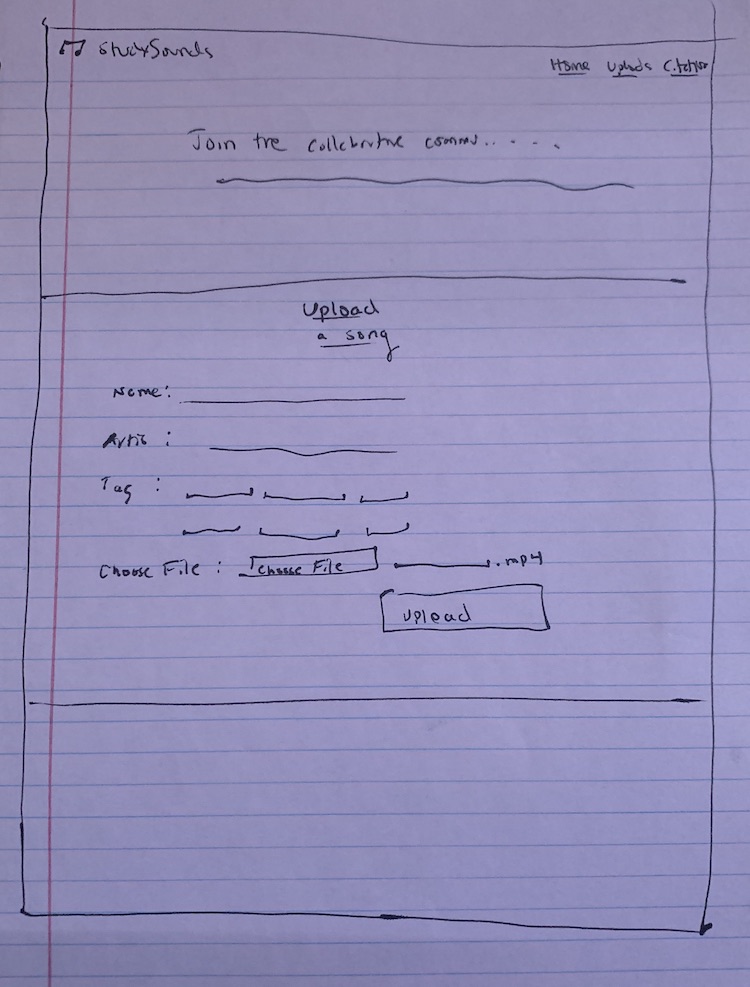 StudySounds
Home Uploads Citation
Join the collebrative commu.. . . .
Upload
a song
Name:
Artis :
Tag :
Choose File : Choose File .mp4
Upload